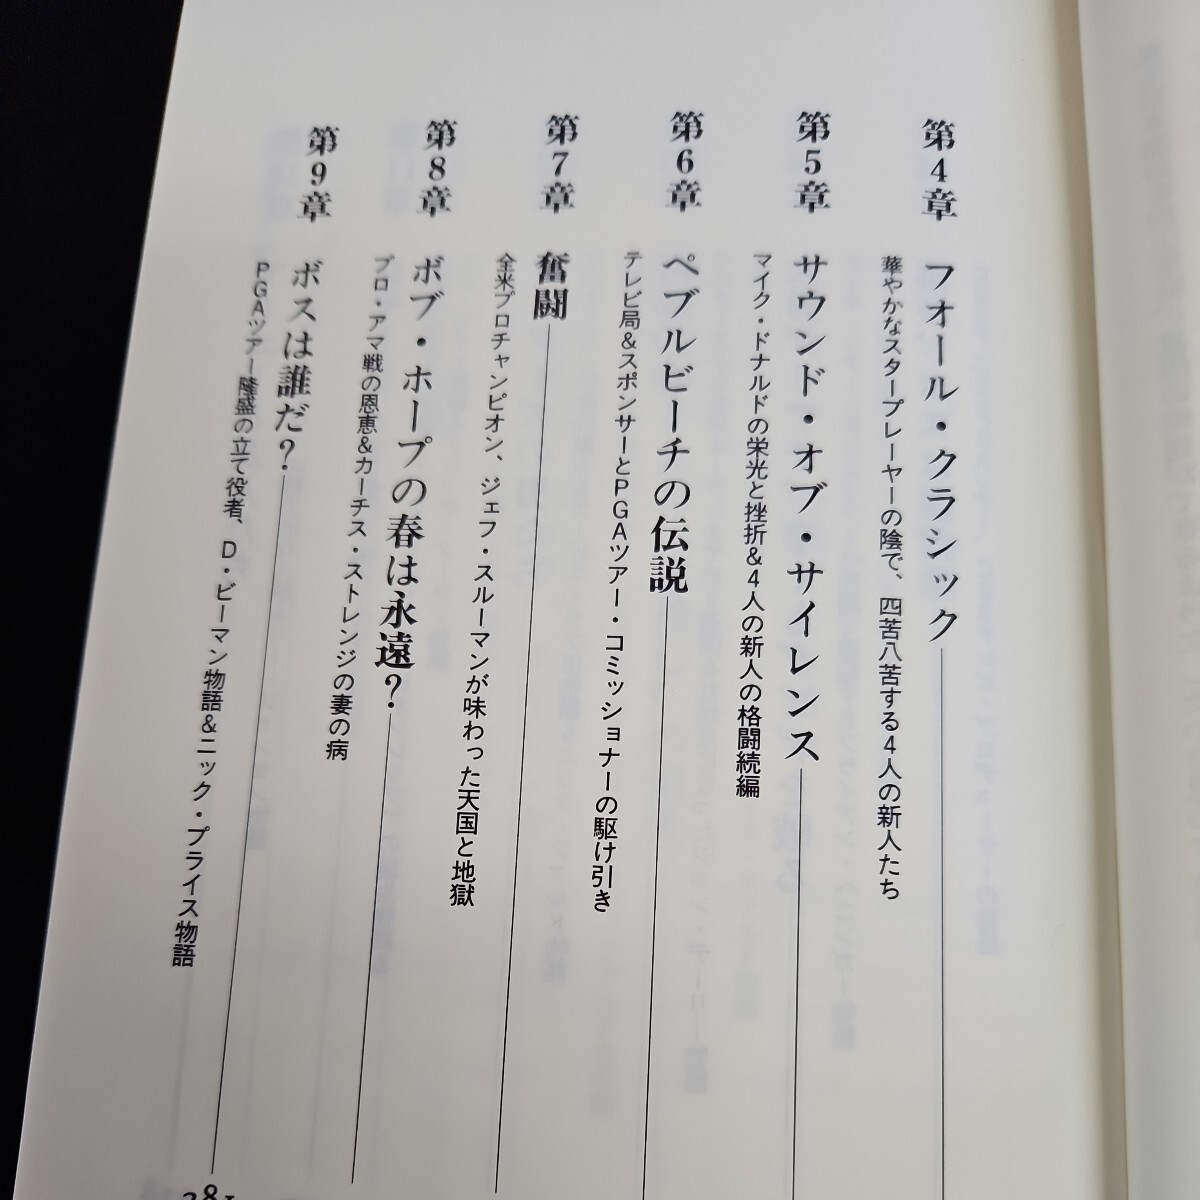 第4章 フォール・クラシック
華やかなスタープレーヤーの陰で、四苦八苦する4人の新人たち
第5章 サウンド・オブ・サイレンス
マイク・ドナルドの栄光と挫折&4人の新人の格闘続編
第6章 ペブルビーチの伝説
テレビ局&スポンサーとPGAツアー・コミッショナーの駆け引き
第7章 奮闘
全米プロチャンピオン、ジェフ・スルーマンが味わった天国と地獄
第8章 ボブ・ホープの春は永遠?
プロ・アマ戦の恩恵&カーチス・ストレンジの妻の病
第9章 ボスは誰だ?
PGAツアー隆盛の立て役者、D・ビーマン物語&ニック・プライス物語